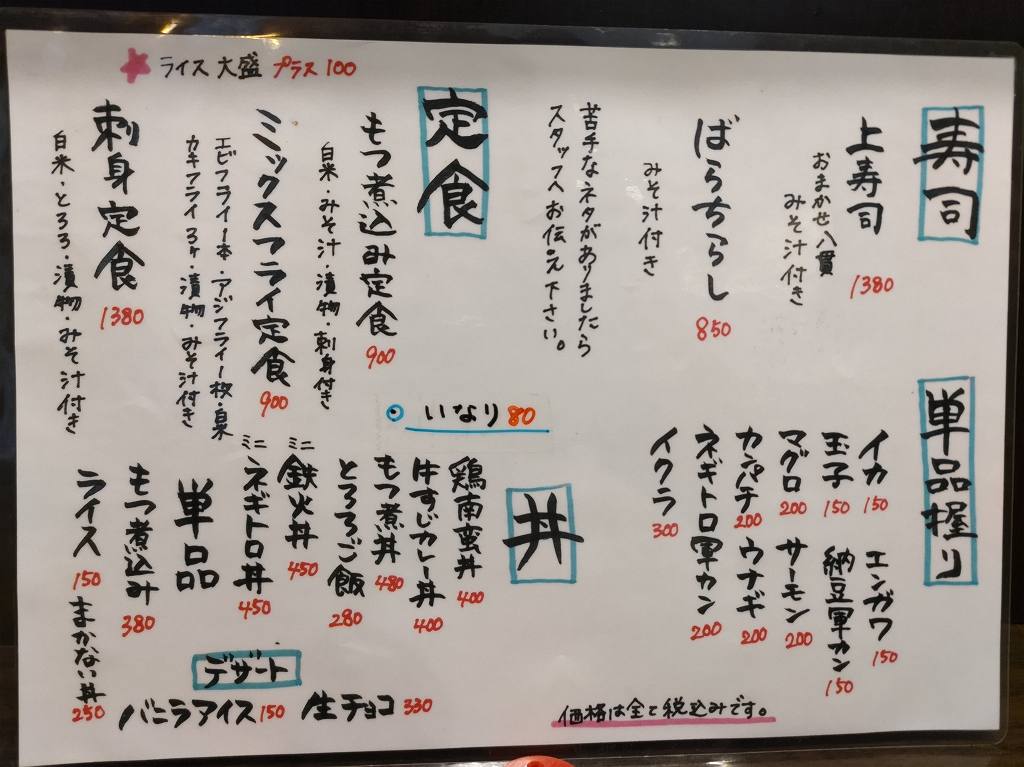 寿司
上寿司 1380
おまかせ八貫
みそ汁付き
ばらちらし 850
みそ汁付き
苦手なネタがありましたら
スタッフへお伝え下さい。
単品握り
イカ 150
エンガワ 150
玉子 150
納豆軍カン 150
マグロ 200
サーモン 200
カンパチ 200
ウナギ 200
ネギトロ軍カン 200
イクラ 300
ライス 大盛 プラス100
定食
もつ煮込み定食 900
白米・みそ汁・漬物・刺身付き
ミックスフライ定食 900
エビフライ1本・アジフライ1枚・白米
カキフライ3ヶ・漬物・みそ汁付き
刺身定食 1380
白米・とろろ・漬物・みそ汁付き
いなり 80
丼
鶏南蛮丼 400
牛すじカレー丼 400
もつ煮丼 480
とろろご飯 280
ミニ鉄火丼 450
ミニネギトロ丼 450
単品
もつ煮込み 380
ライス 150
まかない丼 250
デザート
バニラアイス 150
生チョコ 330
価格は全て税込みです。